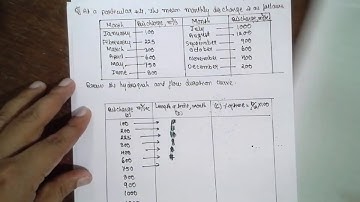 Q. At a particular site, the mean monthly discharge is as follows
Month Discharge, m³/s Month Discharge, m³/s
January 100 July 1000
February 225 August 1200
March 300 September 900
April 600 October 600
May 750 November 400
June 800 December 200
Draw the hydrograph and flow duration curve.
Discharge m³/sec Length of time, month
100
200
225
300
400
600
750
800
900
1000